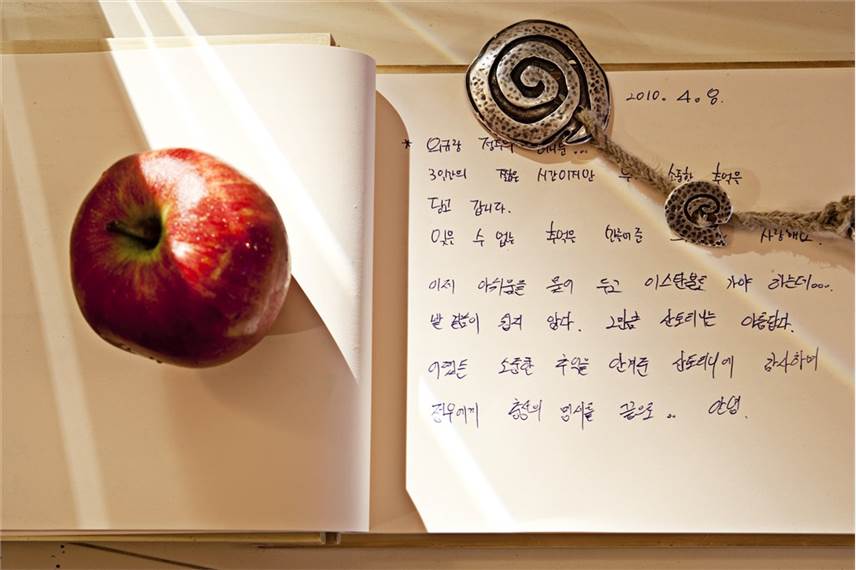 2010. 4. 8.
* 민규랑 정우의
3일간의 짧은 시간이지만 소중한 추억은
담고 갑니다.
잊을 수 없는 추억은 만들어준 사랑해요.
이제 아쉬움을 묻어 두고 이스탄불로 가야 하는데...
발걸음이 쉽지 않다. 그만큼 산토리니는 아름답다.
어쨌든 소중한 추억을 안겨준 산토리니에 감사하며
정우에게 충성의 맹세를 끝으로 .. 안녕.